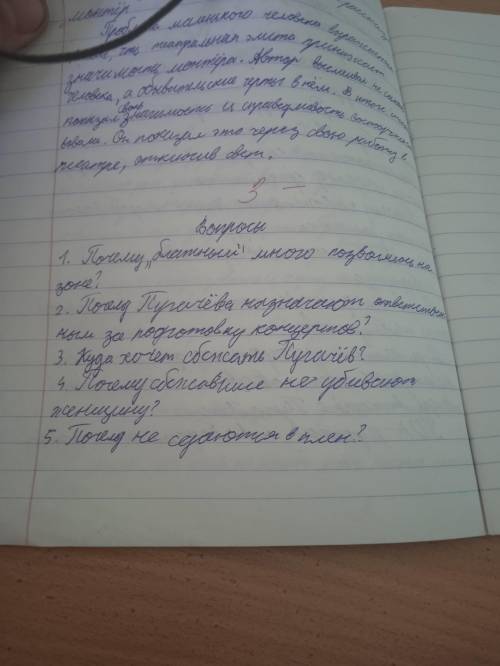 монтёр
Проблема маленького человека
что театральная элита принижает
значимость монтёра. Автор высмеивал не
человека, а обывательские черты в нём. В итоге
показал свою значимость и справедливость
Он показал это через свою работу в
театре, отключив свет.
3 -
Вопросы
1. Почему „блатным" много позволялось на
зоне?
2. Почему Пугачёва назначают ответствен-
ным за подготовку концертов?
3. Куда хочет сбежать Пугачёв?
4. Почему сбежавшие не убивают
женщину?
5. Почему не сдаются в плен?